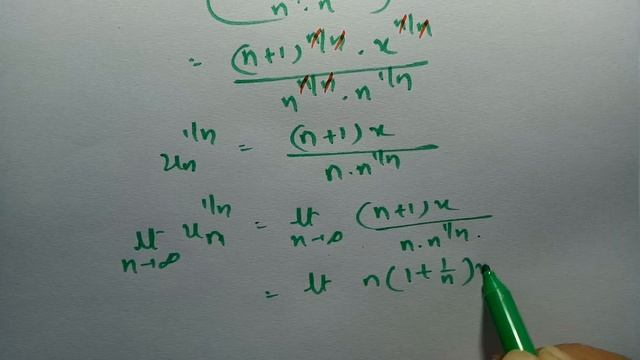 n · n
= (n+1)^{n/n} · x^{n/n} / n^{n/n} · n^{1/n}
u_n^{1/n} = (n+1)x / n · n^{1/n}
lt_{n→∞} u_n^{1/n} = lt_{n→∞} (n+1)x / n · n^{1/n} .
= lt n(1 + 1/n)